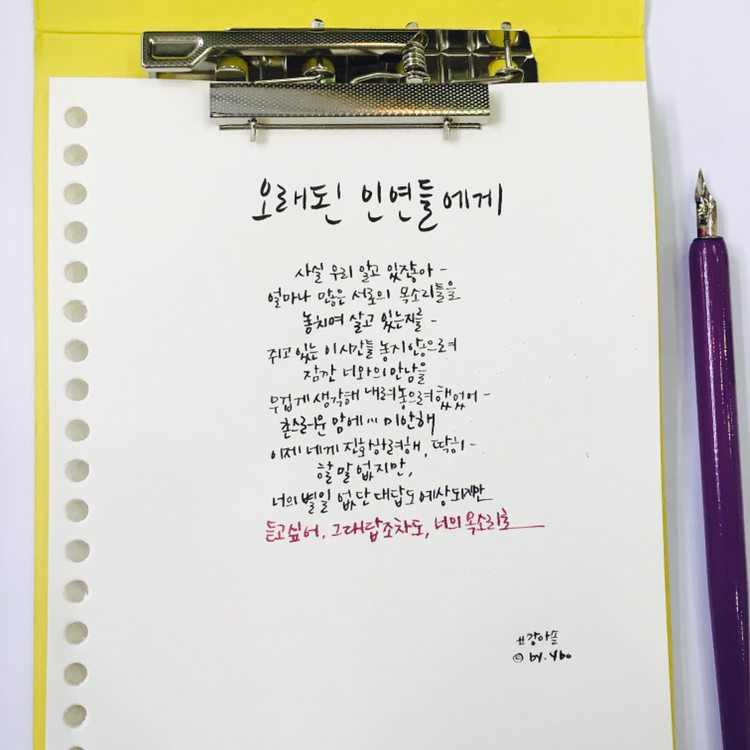 오래된 인연들에게
사실 우리 알고 있잖아 -
얼마나 많은 서로의 목소리들을
놓치며 살고 있는지를 -
쥐고 있는 이 시간들 놓지 않으려
잠깐 너와의 만남을
무겁게 생각해 내려놓으려 했었어 -
촌스러운 맘에 미안해
이제 네게 전화하려해, 딱히 -
할 말 없지만,
너의 별일 없단 대답도 예상되지만
듣고싶어, 그 대답조차도, 너의 목소리로
강아솔
© by. ybo